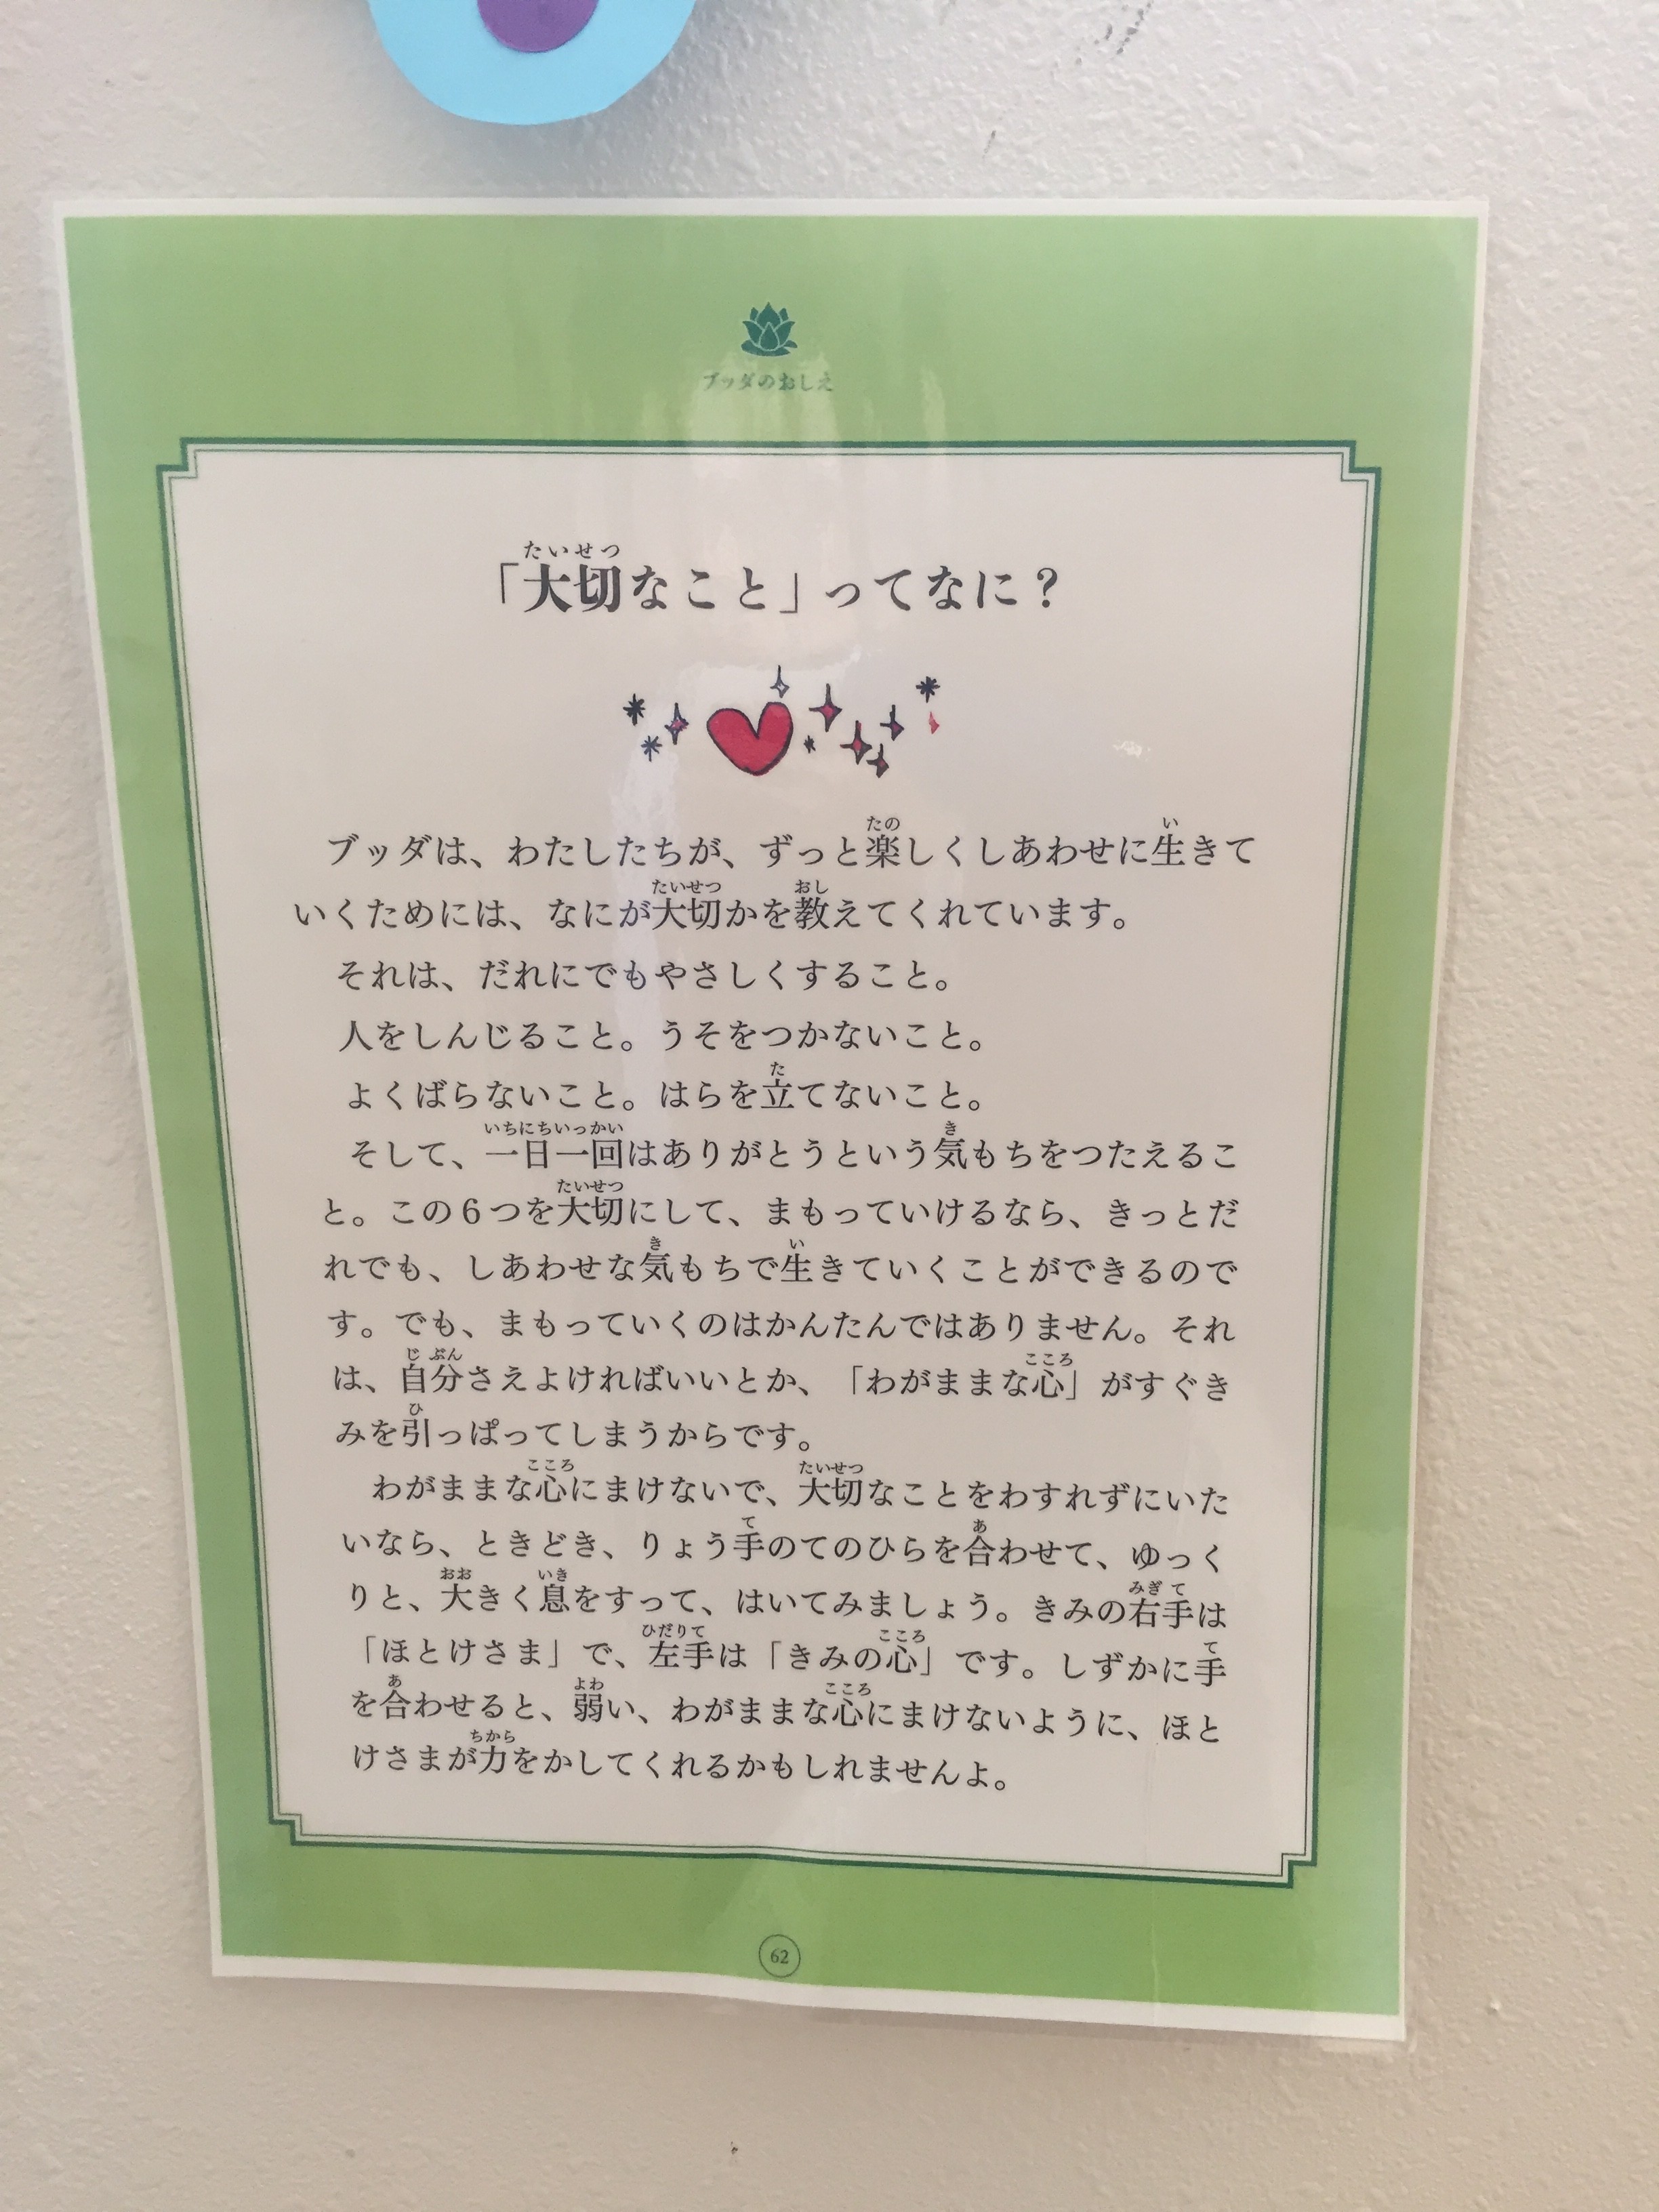 ブッダのおしえ
「大切なこと」ってなに？
ブッダは、わたしたちが、ずっと楽しくしあわせに生きて
いくためには、なにが大切かを教えてくれています。
それは、だれにでもやさしくすること。
人をしんじること。うそをつかないこと。
よくばらないこと。はらを立てないこと。
そして、一日一回はありがとうという気もちをつたえるこ
と。この６つを大切にして、まもっていけるなら、きっとだ
れでも、しあわせな気もちで生きていくことができるので
す。でも、まもっていくのはかんたんではありません。それ
は、自分さえよければいいとか、「わがままな心」がすぐき
みを引っぱってしまうからです。
わがままな心にまけないで、大切なことをわすれずにいた
いなら、ときどき、りょう手のてのひらを合わせて、ゆっく
りと、大きく息をすって、はいてみましょう。きみの右手は
「ほとけさま」で、左手は「きみの心」です。しずかに手
を合わせると、弱い、わがままな心にまけないように、ほと
けさまが力をかしてくれるかもしれませんよ。
62